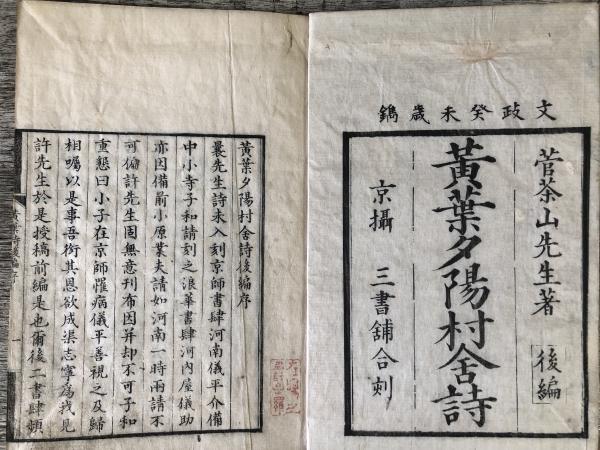 文政癸未歳鐫
菅茶山先生著
後編
黄葉夕陽村舎詩
京攝　三書舗合刻
黄葉夕陽村舎詩後編序
曩先生詩未入刻京師書肆河南儀平介備
中小寺子和請刻之浪華書肆河内屋儀助
亦因備前小原業夫請如河南一時兩請不
可偏許先生固無意刊布因并却不可子和
重懇曰小子在京師罹病儀平善視之及歸
相囑以是事吾銜其恩欲成渠志寧爲我見
許先生於是授稿前編是也爾後二書肆頻